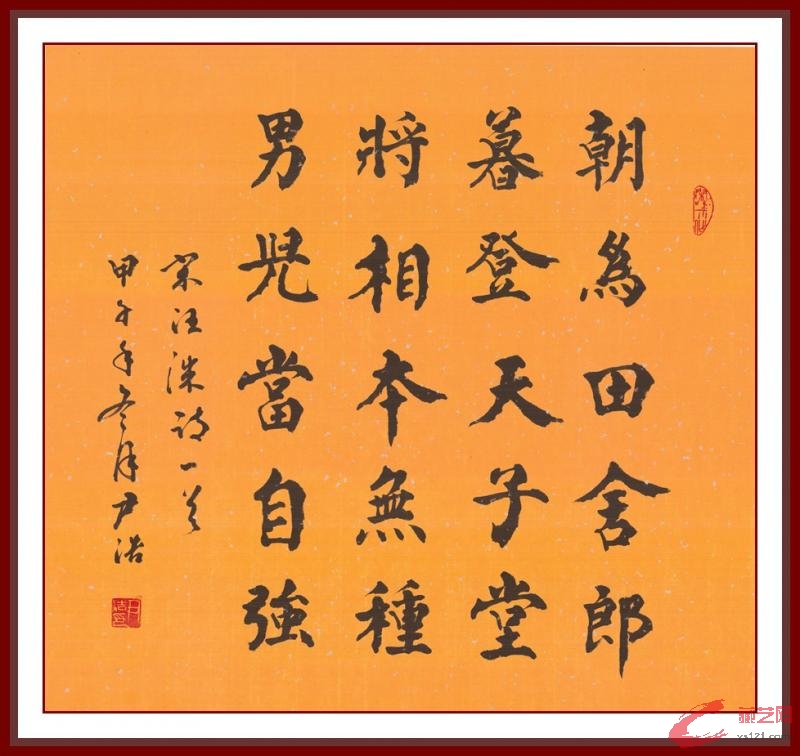 朝為田舍郎
暮登天子堂
將相本無種
男兒當自強
宋汪洙詩一首
甲午年冬月尹浩
藏艺网